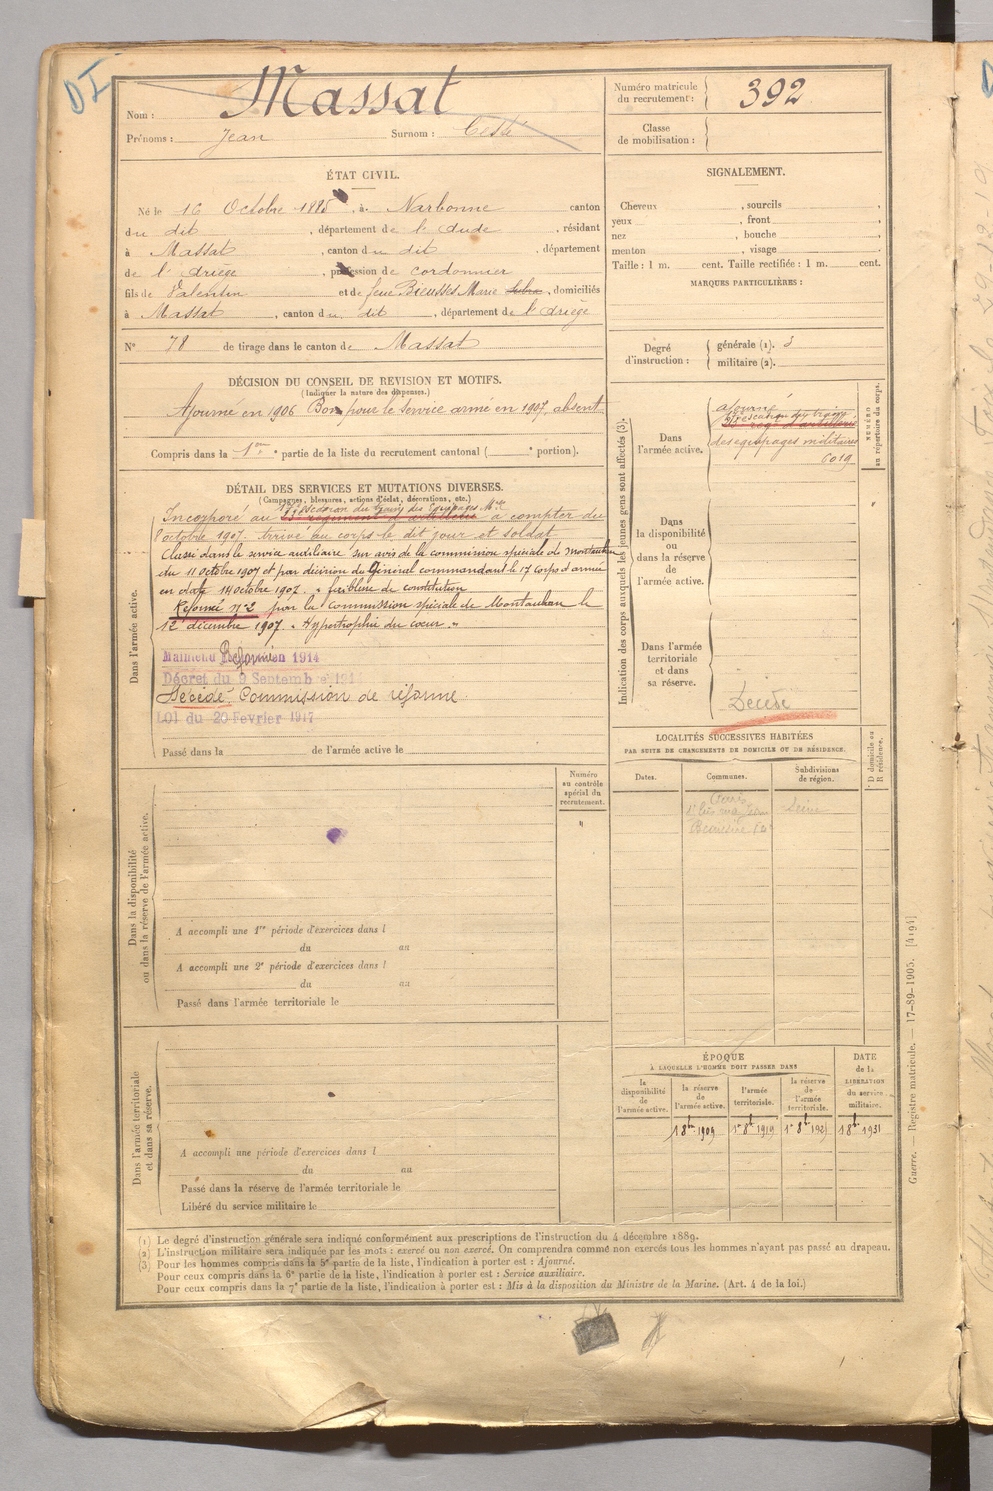 DI
Nom : Massat
Prénoms : Jean Surnom :
Numéro matricule du recrutement : 392
Classe de mobilisation :
ÉTAT CIVIL.
Né le 16 Octobre 1885, à Narbonne canton
du dit, département de l'Aude, résidant
à Massat, canton du dit, département
de l'Ariège, profession de cordonnier
fils de Valentin et de feue Bieusses Marie, domiciliés
à Massat, canton du dit, département de l'Ariège
N° 78 de tirage dans le canton de Massat
SIGNALEMENT.
Cheveux , sourcils ,
yeux , front ,
nez , bouche ,
menton , visage .
Taille : 1 m. cent. Taille rectifiée : 1 m. cent.
MARQUES PARTICULIÈRES :
Degré d'instruction : générale (1). 3
militaire (2).
DÉCISION DU CONSEIL DE REVISION ET MOTIFS.
(Indiquer la nature des dispenses.)
Ajourné en 1906 Bon pour le service armé en 1907, absent
Compris dans la 1re partie de la liste du recrutement cantonal ( e portion).
DÉTAIL DES SERVICES ET MUTATIONS DIVERSES.
(Campagnes, blessures, actions d'éclat, décorations, etc.)
escadron du train des Equipages Mres
Incorporé au régiment d'artillerie à compter du
8 octobre 1907. Arrivé au corps le dit jour et soldat
Classé dans le service auxiliaire sur avis de la commission spéciale de Montauban
du 11 octobre 1907 et par décision du Général commandant le 17 corps d'armée
en date 14 octobre 1907. " faiblesse de constitution
Réformé n°2 par la Commission spéciale de Montauban le
12 décembre 1907. " Hypertrophie du coeur. "
Maintenu Réformé en 1914
Décret du 9 Septembre 1914
Décédé. Commission de réforme
Loi du 20 Fevrier 1917
Passé dans la de l'armée active le
Dans l'armée active.
Indication des corps auxquels les jeunes gens sont affectés (3).
Dans l'armée active.
ajourné
escadron du train
des équipages militaires
6019
NUMÉRO au répertoire du corps.
Dans la disponibilité ou dans la réserve de l'armée active.
"
Dans l'armée territoriale et dans sa réserve.
Décédé
LOCALITÉS SUCCESSIVES HABITÉES
PAR SUITE DE CHANGEMENTS DE DOMICILE OU DE RÉSIDENCE.
D domicile ou R résidence.
Dates. Communes. Subdivisions de région.
Paris Seine
Numéro au contrôle spécial du recrutement.
"
Dans la disponibilité ou dans la réserve de l'armée active.
A accompli une 1re période d'exercices dans l
du au
A accompli une 2e période d'exercices dans l
du au
Passé dans l'armée territoriale le
Dans l'armée territoriale et dans sa réserve.
A accompli une période d'exercices dans l
du au
Passé dans la réserve de l'armée territoriale le
Libéré du service militaire le
ÉPOQUE
À LAQUELLE L'HOMME DOIT PASSER DANS
la disponibilité de l'armée active.
la réserve de l'armée active.
l'armée territoriale.
la réserve de l'armée territoriale.
DATE de la LIBÉRATION du service militaire.
1 8bre 1909 1er 8bre 1919 1er 8bre 192 1 8bre 1931
Guerre. — Registre matricule. — 17-89-1905. [4194]
(1) Le degré d'instruction générale sera indiqué conformément aux prescriptions de l'instruction du 4 décembre 1889.
(2) L'instruction militaire sera indiquée par les mots : exercé ou non exercé. On comprendra comme non exercés tous les hommes n'ayant pas passé au drapeau.
(3) Pour les hommes compris dans la 5e partie de la liste, l'indication à porter est : Ajourné.
Pour ceux compris dans la 6e partie de la liste, l'indication à porter est : Service auxiliaire.
Pour ceux compris dans la 7e partie de la liste, l'indication à porter est : Mis à la disposition du Ministre de la Marine. (Art. 4 de la loi.)